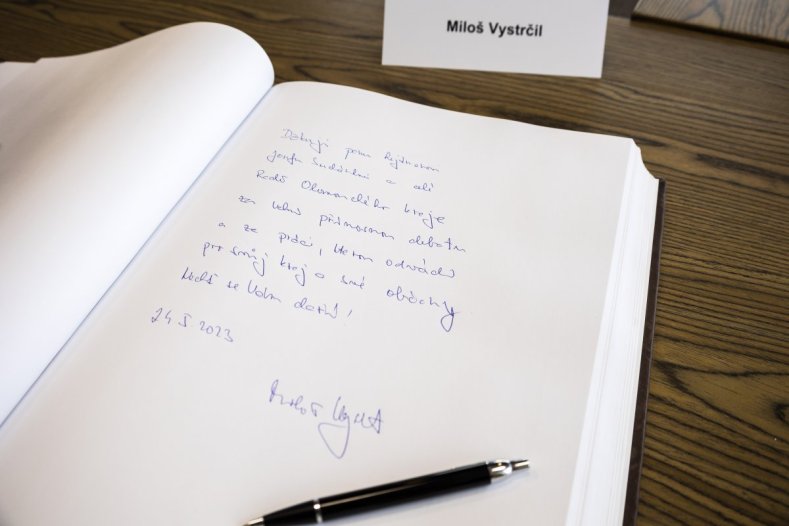 Miloš Vystrčil
Děkuji panu hejtmanovi
Josefu Suchánkovi a celé
Radě Olomouckého kraje
za velmi přínosnou debatu
a za práci, kterou odvádí
pro svůj kraj a své občany
Nechť se Vám daří!
24. 5. 2023
Miloš Vystrčil